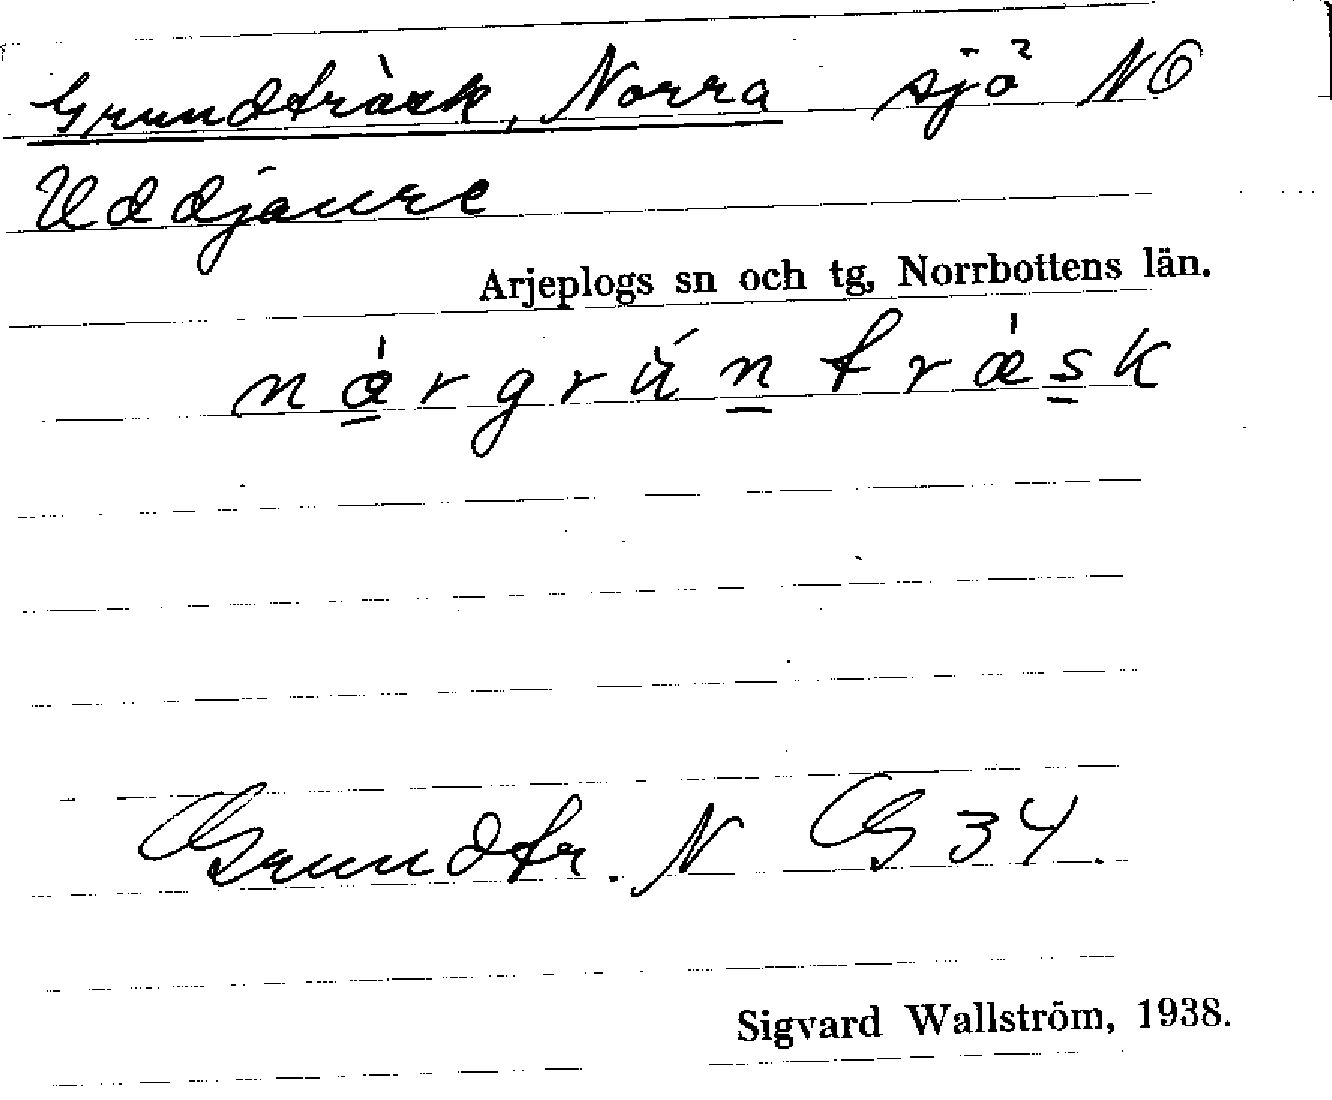 Grundträsk, Norra sjö NO
Uddjaure
Arjeplogs sn och tg, Norrbottens län.
nǫ́rgrúntrǽsk
Grundtr. N GS 34.
Sigvard Wallström, 1938.